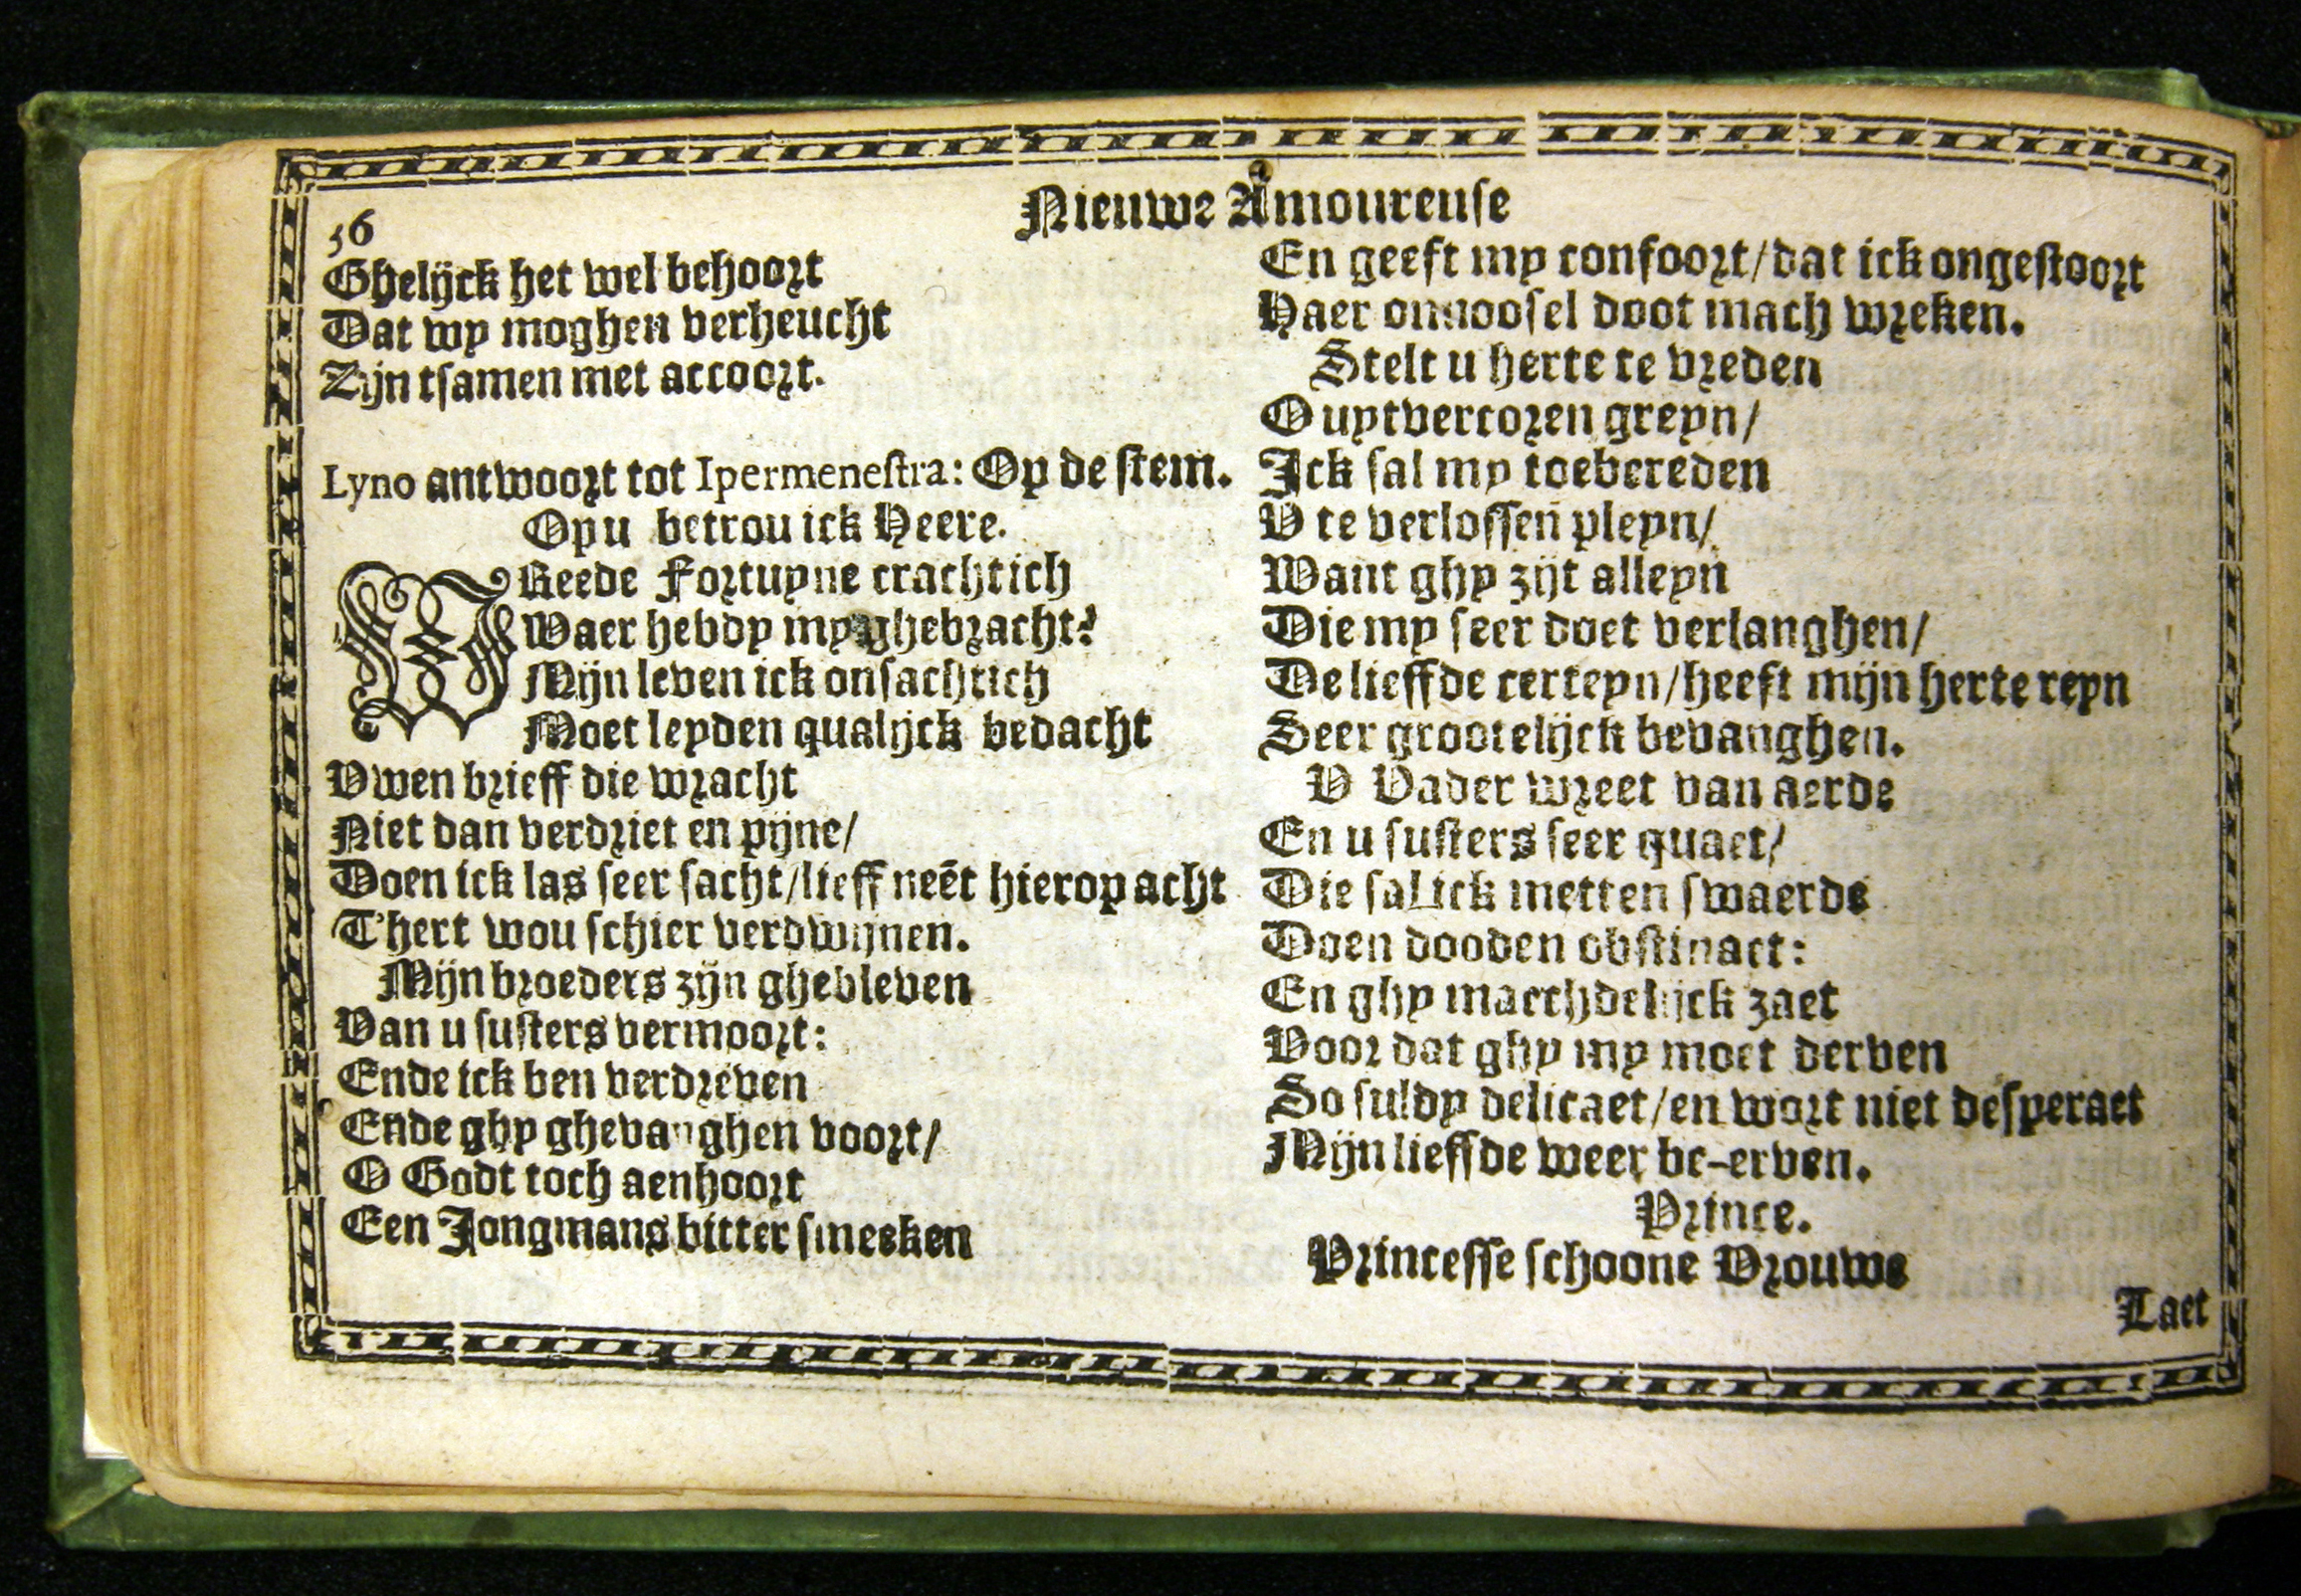 Nieuwe Amoureuse
56
Ghelijck het wel behoort
Dat wy moghen verheucht
Zijn tsamen met accoort.
Lyno antwoort tot Ipermenestra: Op de stem.
Op u betrou ick Heere.
WReede Fortuyne crachtich
Waer hebdy my ghebracht?
Mijn leven ick onsachtich
Moet leyden qualijck bedacht
Uwen brieff die wracht
Niet dan verdriet en pijne/
Doen ick las seer sacht/lieff neēt hierop acht
T'hert wou schier verdwijnen.
Mijn broeders zijn ghebleven
Van u susters vermoort:
Ende ick ben verdreven
Ende ghy ghevanghen voort/
O Godt toch aenhoort
Een Jongmans bitter smeeken
En geeft my confoort/dat ick ongestoort
Haer onnoosel doot mach wreken.
Stelt u herte te vreden
O uytvercoren greyn/
Ick sal my toebereden
U te verlossen pleyn/
Want ghy zijt alleyn
Die my seer doet verlanghen/
De lieffde certeyn/heeft mijn herte reyn
Seer grootelijck bevanghen.
U Vader wreet van aerde
En u susters seer quaet/
Die sal ick metten swaerde
Doen dooden obstinaet:
En ghy maechdelijck zaet
Voor dat ghy my moet derven
So suldy delicaet/en wort niet desperaet
Mijn lieffde weer be-erven.
Prince.
Princesse schoone Vrouwe
Laet